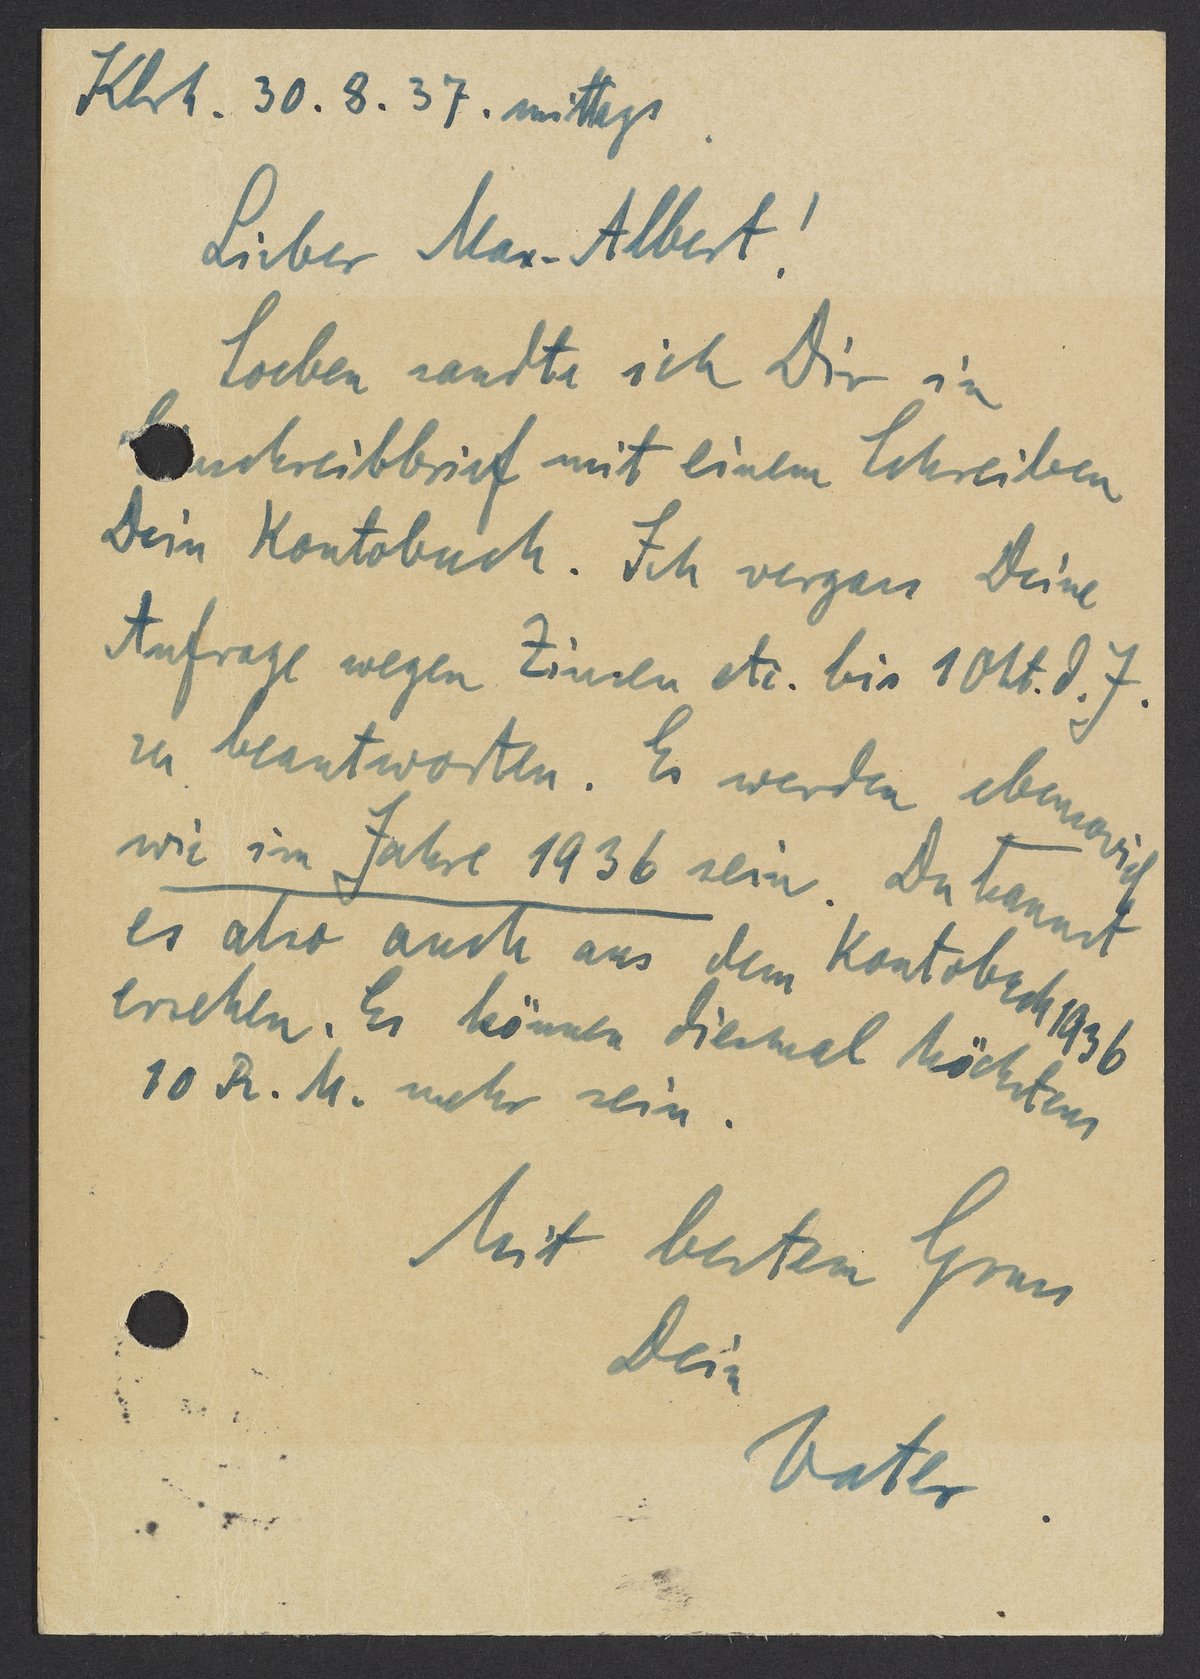 Klrh. 30. 8. 37. mittags
Lieber Max-Albert!
Soeben sandte ich Dir in
Einschreibbrief mit einem Schreiben
Dein Kontobuch. Ich vergass Deine
Anfrage wegen Zinsen etc. bis 1 Okt. d. J.
zu beantworten. Es werden ebensoviel
wie im Jahre 1936 sein. Du kannst
es also auch aus dem Kontobuch 1936
ersehen. Es können diesmal höchstens
10 R. M. mehr sein.
Mit bestem Gruss
Dein
Vater